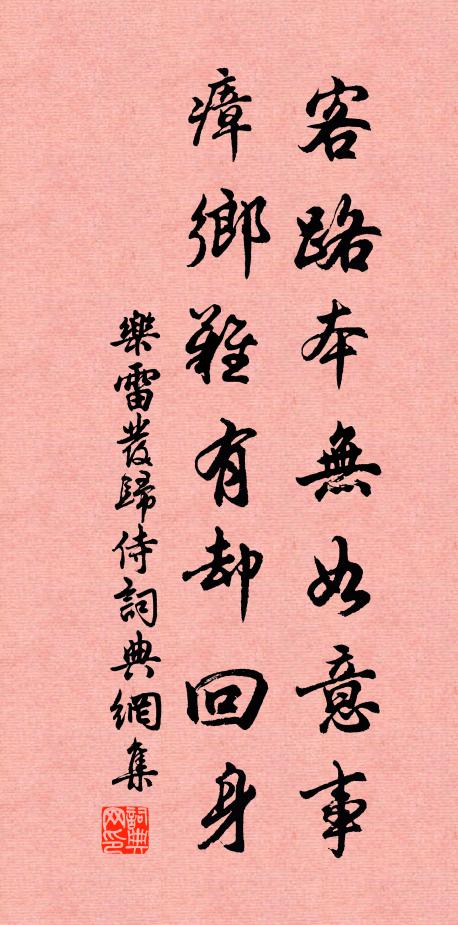 客路本無如意事
瘴鄉難有却回身
樂雷發歸侍詞典網集
詞典
网印